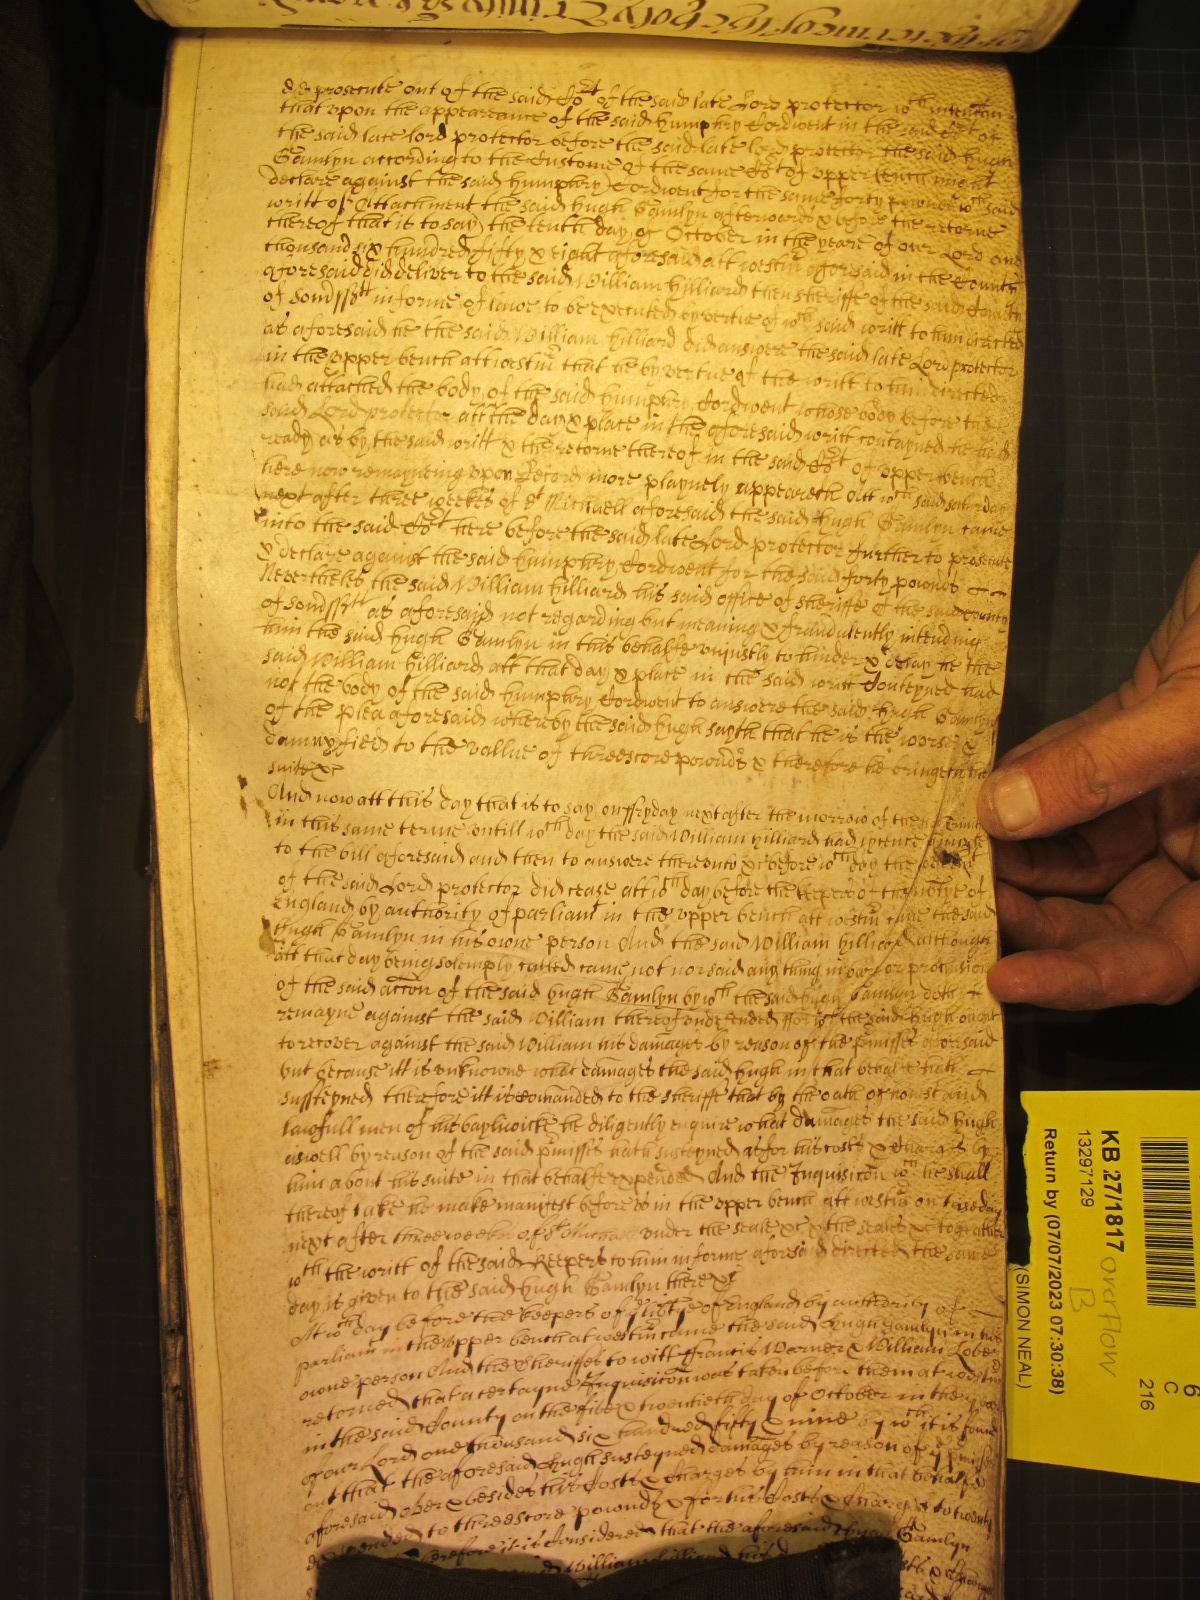 did prosecute out of the said Cort of the said late Lord protector wth intencon
that upon the appeareance of the said humphry Cordwent in the said Cort of
the said late lord protector before the said late lord protector the said hugh
Gamlyn according to the Custome of the same Cort of upper bench might
declare against the said humphry Cordwent for the same forty pownds wch said
writt of Attachment the said hugh Gamlyn afterwards & before the retorne
thereof that is to say the tenth day of October in the yeare of our Lord one
thousand six hundred fifty & eight aforesaid att westmr aforesaid in the County
aforesaid did deliver to the said William hilliard then sheriffe of the said County
of Somersett in forme of lawe to be executed by vertue of wch said writt to him directed
as aforesaid he the said William hilliard did answere the said late Lord protector
in the upper bench att westmr that he by vertue of the writt to him directed
had attached the body of the said humphry Cordwent whose body before the
said Lord protector att the day & place in the aforesaid writt conteyned he had
ready as by the said writt & the retorne thereof in the said Cort of upper bench
here now remayneing upon Record more playnely appeareth Att wch said saturday
next after three weekes of St Michaell aforesaid the said hugh Gamlyn came
into the said Cort here before the said late Lord protector further to prosecute
& declare against the said humphry Cordwent for the said forty pownds
Neverthelesse the said William hilliard his said office of sheriffe of the said county
of Somersett as aforesaid not regarding but meaning & fraudulently intending
him the said hugh Gamlyn in this behalfe unjustly to hinder & delay he the
said William hilliard att that day & place in the said writt Conteyned had
not the body of the said humphry Cordwent to answere the said hugh Gamlyn
of the plea aforesaid whereby the said hugh sayth that he is the worse &
damnyfied to the vallue of threescore pownds & therefore he bringeth his
suite &c
And now att this day that is to say on ffryday next after the morrow of the holy Trinity
in this same terme untill wch day the said William hilliard had lycence to imparle
to the bill aforesaid and then to answere thereunto &c before wch day the
of the said Lord protector did cease att wch day before the keepers of the libtye of
England by authority of parliamt in the upper bench att westmr came the said
hugh Gamlyn in his owne person And the said William hilliard although
att that day being solemply called came not nor said any thing in barr or preclusion
of the said accon of the said hugh Gamlyn by wch the said hugh Gamlyn doth
remayne against the said William thereof undefended ffor wch the said hugh ought
to recover against the said William his damages by reason of the premisses aforesaid
but because itt is unknowne what damages the said hugh in that behalfe hath
susteyned therefore itt is comanded to the sheriffe that by the oath of honest and
lawfull men of his baylywicke he diligently enquire what damages the said hugh
aswell by reason of the said premisses hath susteyned as for his costs & charges by
him about his suite in that behalfe expended And the Inquisicon wch he shall
thereof take he make manifest before us in the upper bench att westmr on tuesday
next after three weekes of St Michaell under the seale &c & the seales &c together
wth the writt of the said Keepers to him in forme aforesaid directed the same
day is given to the said hugh Gamlyn there &c
At wch day before the keepers of ye libtye of England by authority of
parliamt in the upper bench at westmr came the said hugh Gamlyn in his
owne person And the Sheriffes to witt ffrancis Warner & William Lobe
retorned that a certayne Inquisicon was taken before them at westmr
in the said County on the five & twentieth day of October in the yeare
of our Lord one thousand six hundred fifty & nine by wch it is found
out that the aforesaid hugh susteyned damages by reason of ye premisses
aforesaid over & besides his Costs & Charges by him in that behalfe
expended to threescore pownds & for his Costs & Charges to twenty
Therefore it is Considered that the aforesaid hugh Gamlyn
William hilliard his
KB 27/1817
13297129
Return by (07/07/2023 07:30:38)
(SIMON NEAL)
overflow
B
C
216
6